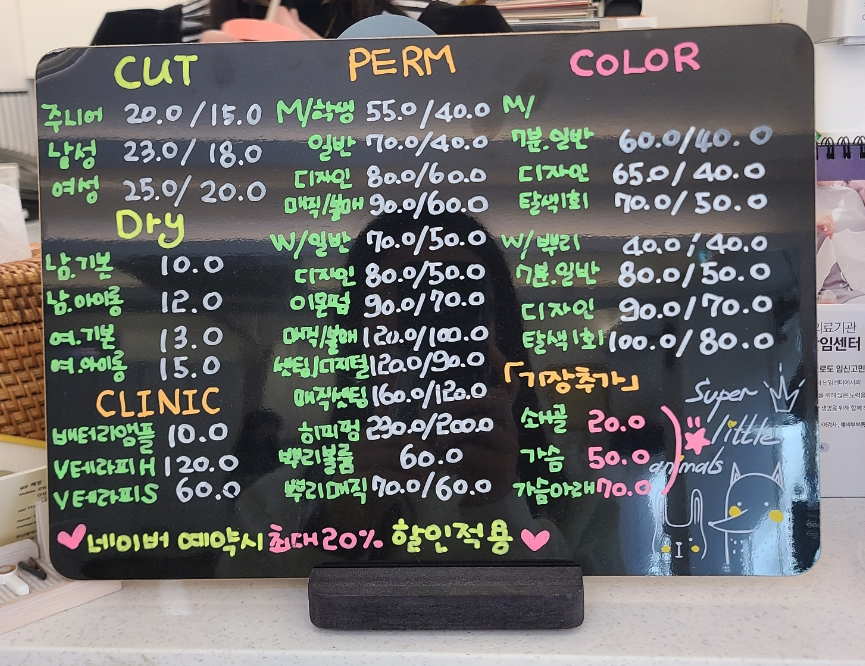 CUT
주니어 20.0/15.0
남성 23.0/18.0
여성 25.0/20.0
Dry
남.기본 10.0
남.아이롱 12.0
여.기본 13.0
여.아이롱 15.0
CLINIC
배터리앰플 10.0
V테라피H 120.0
V테라피S 60.0
PERM
M/학생 55.0/40.0
일반 70.0/40.0
디자인 80.0/60.0
매직/볼매 90.0/60.0
W/일반 70.0/50.0
디자인 80.0/50.0
이몬펌 90.0/70.0
매직/볼매 120.0/100.0
셋팅/디지털 120.0/90.0
매직셋팅 160.0/120.0
히피펌 230.0/200.0
뿌리볼륨 60.0
뿌리매직 70.0/60.0
COLOR
M/
7분.일반 60.0/40.0
디자인 65.0/40.0
탈색1회 70.0/50.0
W/뿌리 40.0/40.0
7분.일반 80.0/50.0
디자인 90.0/70.0
탈색1회 100.0/80.0
「기장추가」
쇄골 20.0
가슴 50.0
가슴아래 70.0
Super
little
animals
♥네이버 예약시 최대20% 할인적용♥
의료기관
임센터